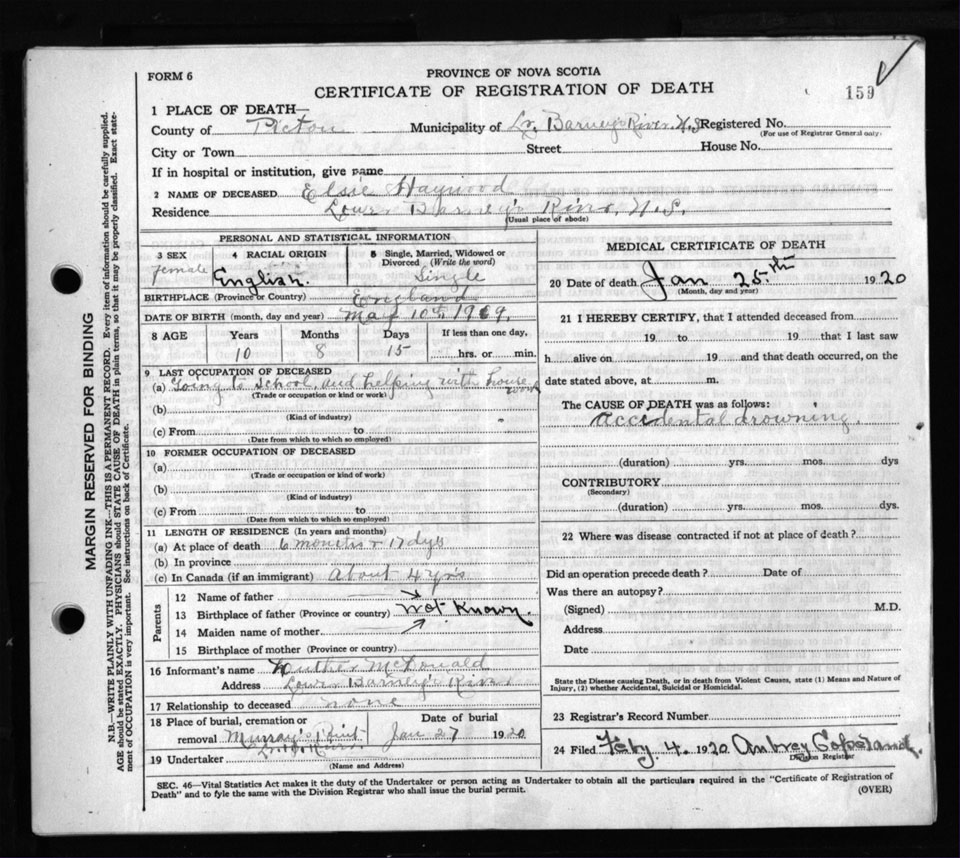 FORM 6
PROVINCE OF NOVA SCOTIA
CERTIFICATE OF REGISTRATION OF DEATH
159
1 PLACE OF DEATH—
County of Pictou Municipality of Lr. Barney's River N.S. Registered No.
(For use of Registrar General only)
City or Town Street House No.
If in hospital or institution, give name
2 NAME OF DECEASED Elsie Haywood
Residence Lower Barney's River, N.S.
(Usual place of abode)
PERSONAL AND STATISTICAL INFORMATION
3 SEX female 4 RACIAL ORIGIN English. 5 Single, Married, Widowed or Divorced (Write the word) Single
BIRTHPLACE (Province or Country) England
DATE OF BIRTH (month, day and year) May 10th 1909.
8 AGE Years 10 Months 8 Days 15 If less than one day, hrs. or min.
9 LAST OCCUPATION OF DECEASED
(a) Going to school, and helping with house work
(Trade or occupation or kind or work)
(b)
(Kind of industry)
(c) From to
(Date from which to which so employed)
10 FORMER OCCUPATION OF DECEASED
(a)
(Trade or occupation or kind of work)
(b)
(Kind of industry)
(c) From to
(Date from which to which so employed)
11 LENGTH OF RESIDENCE (In years and months)
(a) At place of death 6 months & 17 dys
(b) In province
(c) In Canada (if an immigrant) About 4 yrs
Parents
12 Name of father
13 Birthplace of father (Province or country) Not Known.
14 Maiden name of mother
15 Birthplace of mother (Province or country)
16 Informant's name McDonald
Address Lower Barney's River
17 Relationship to deceased none
18 Place of burial, cremation or removal Murray's Point Date of burial Jan 27 1920
19 Undertaker
(Name and Address)
MEDICAL CERTIFICATE OF DEATH
20 Date of death Jan 25th 1920
(Month, day and year)
21 I HEREBY CERTIFY, that I attended deceased from
19 to 19 that I last saw
h alive on 19 and that death occurred, on the
date stated above, at m.
The CAUSE OF DEATH was as follows:
Accidental drowning.
(duration) yrs. mos. dys
CONTRIBUTORY
(Secondary)
(duration) yrs. mos. dys.
22 Where was disease contracted if not at place of death?
Did an operation precede death? Date of
Was there an autopsy?
(Signed) M.D.
Address
Date
State the Disease causing Death, or in death from Violent Causes, state (1) Means and Nature of
Injury, (2) whether Accidental, Suicidal or Homicidal.
23 Registrar's Record Number
24 Filed Feby. 4. 1920 Aubrey Copeland.
Division Registrar
SEC. 46—Vital Statistics Act makes it the duty of the Undertaker or person acting as Undertaker to obtain all the particulars required in the "Certificate of Registration of
Death" and to fyle the same with the Division Registrar who shall issue the burial permit.
(OVER)
MARGIN RESERVED FOR BINDING
N.B.—WRITE PLAINLY WITH UNFADING INK—THIS IS A PERMANENT RECORD. Every item of information should be carefully supplied.
AGE should be stated EXACTLY. PHYSICIANS should STATE CAUSE OF DEATH in plain terms, so that it may be properly classified. Exact state-
ment of OCCUPATION is very important. See instructions on back of Certificate.